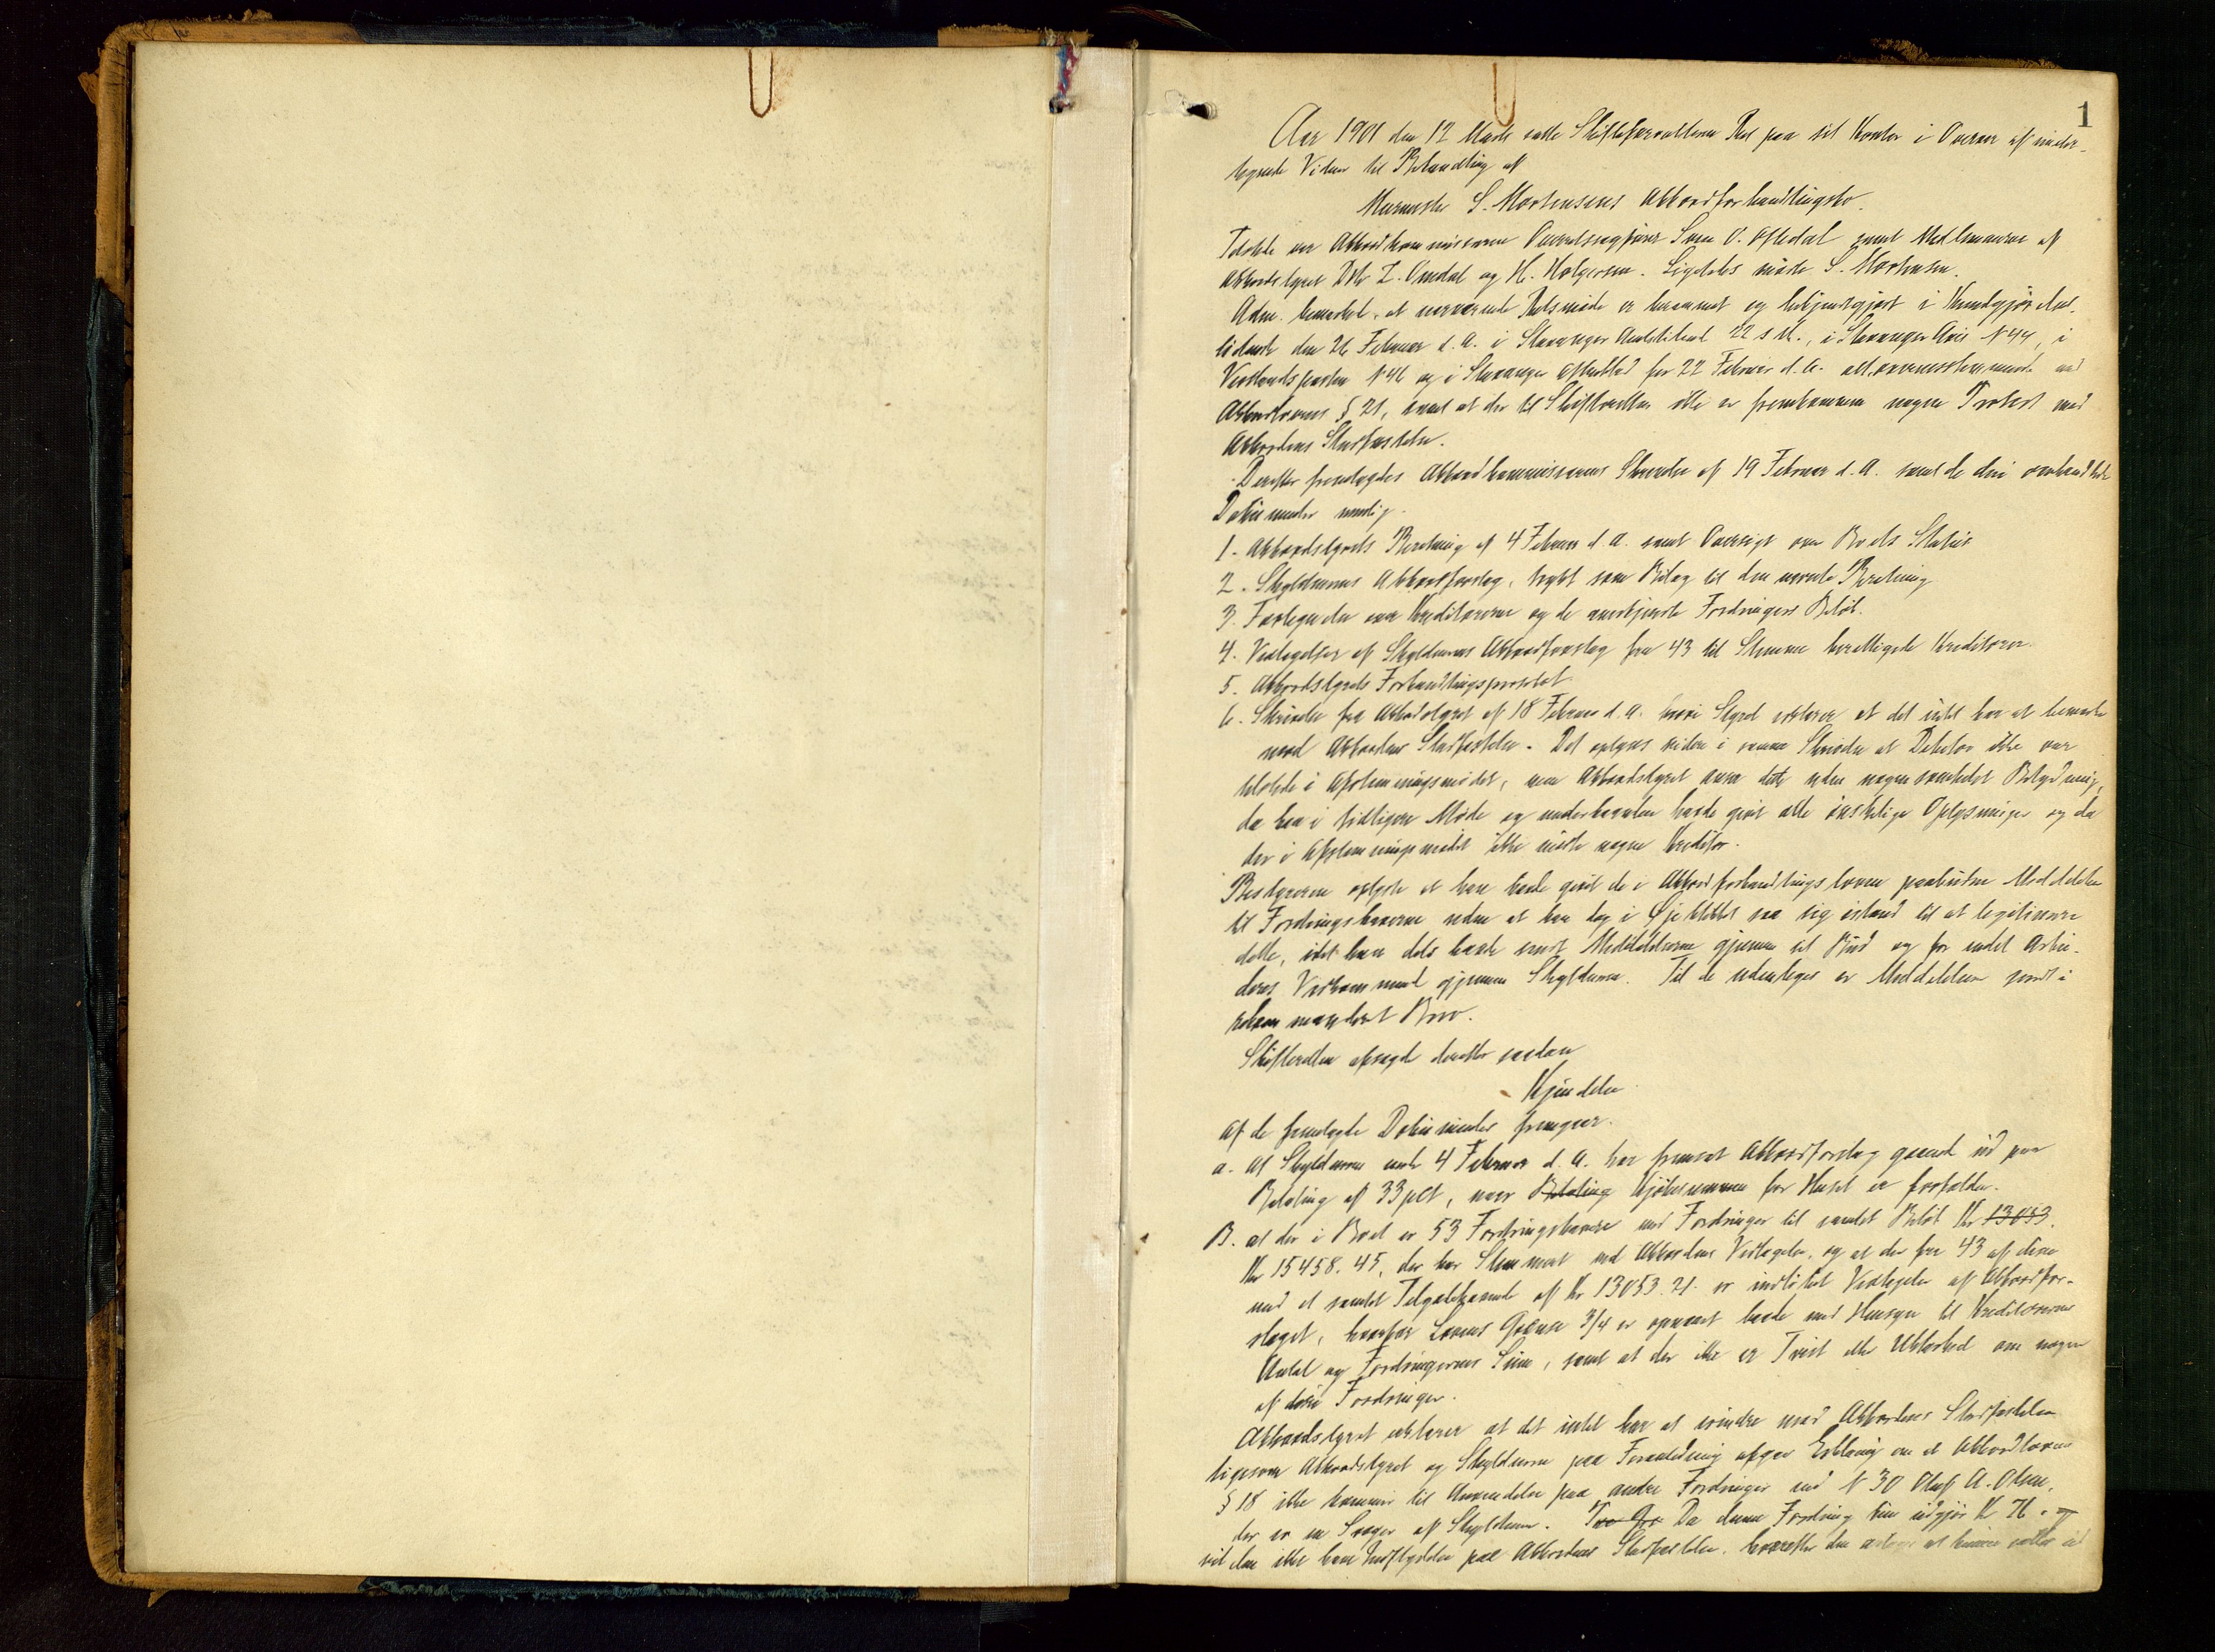 1
Aar 1901 den 12 Marts satte Skifteforvalteren Ret paa sit Kontor i Overvær af under-
tegnede Vidner til Behandling af
Murmester S. Mortensens Akkordforhandlingsbo.
Tilstede var Akkordkommissæren Overretssagfører Sven O. Oftedal samt Medlemmerne af
Akkordstyret DHr Z. Omdal og H. Holgersen. Ligeledes mødte S. Mortensen.
Adm. bemærket, at nærværende Retsmøde er berammet og bekjendtgjort i Kundgjørelses-
tidende den 26 Februar d.A. i Stavanger Amtstidende 22 s M., i Stavanger Avis N 44, i
Vestlandsposten N 46 og i Stavanger Aftenblad for 22 Februar d.A. alt overensstemmende med
Akkordlovens § 21, samt at der til Skifteretten ikke er fremkommen nogen Protest mod
Akkordens Stadfæstelse.
Derefter fremlagdes Akkordkommissærens Skrivelse af 19 Februar d.A. samt de deri omhandlede
Dokumenter nemlig.
1. Akkordstyrets Beretning af 4 Februar d.A. samt Oversigt over Boets Status
2. Skyldnerens Akkordforslag, trykt som Bilag til den nævnte Beretning
3. Fortegnelse over Kreditorerne og de anerkjendte Fordringers Beløb.
4. Vedtagelser af Skyldnerens Akkordforslag fra 43 til Stemme berettigede Kreditorer.
5. Akkordstyrets Forhandlingsprotokol.
6. Skrivelse fra Akkordstyret af 18 Februar d.A. hvori Styret erklærer at det intet har at bemærke
mod Akkordens Stadfæstelse. Det oplyses videre i samme Skrivelse at Debitor ikke var
tilstede i Afstemningsmødet, men Akkordstyret anser dette uden nogensomhelst Betydning,
da han i tidligere Møde og underhaanden havde givet alle ønskelige Oplysninger og da
der i Afstemningsmødet ikke mødte nogen Kreditor.
Bestyreren oplyste at han havde givet de i Akkordforhandlingsloven paabudne Meddelelser
til Fordringshaverne uden at han dog i Øjeblikket saa sig istand til at legitimere
dette, idet han dels havde sendt Meddelelserne gjennem sit Bud og for endel Arbei-
deres Vedkommende gjennem Skyldneren. Til de udenbyges er Meddelelser sendt i
rekommanderet Brev.
Skifteretten afsagde derefter saadan
Kjendelse
Af de fremlagte Dokumenter fremgaar.
a. At Skyldneren under 4 Februar d.A. har fremsat Akkordforslag gaaende ud paa
Betaling af 33 pCt, naar Betaling Kjøbesummen for Huset er forfalden.
B. at der i Boet er 53 Fordringshavere med Fordringer til samlet Beløb Kr 13053.
Kr 15458.45, der har Stemmeret ved Akkordens Vedtagelse, og at der fra 43 af disse
med et samlet Tilgodehavende af Kr 13053.21. er indløbet Vedtagelse af Akkordfor-
slaget, hvorfor Lovens Grænse 3/4 er opnaaet baade med Hensyn til Kreditorernes
Antal og Fordringernes Sum, samt at der ikke er Tvist eller Uklarhed om nogen
af disse Fordringer.
Akkordstyret erklærer at det intet har at erindre mod Akkordens Stadfæstelse
ligesom Akkordstyret og Skyldneren paa Foranledning afgav Erklæring om at Akkordlovens
§ 18 ikke kommer til Anvendelse paa andre Fordringer end N 30 Oluf A. Olsen,
der er en Svoger af Skyldneren. Da denne Fordring kun udgjør Kr
vil den ikke have Indflydelse paa Akkordens Stadfæstelse, hvorefter den